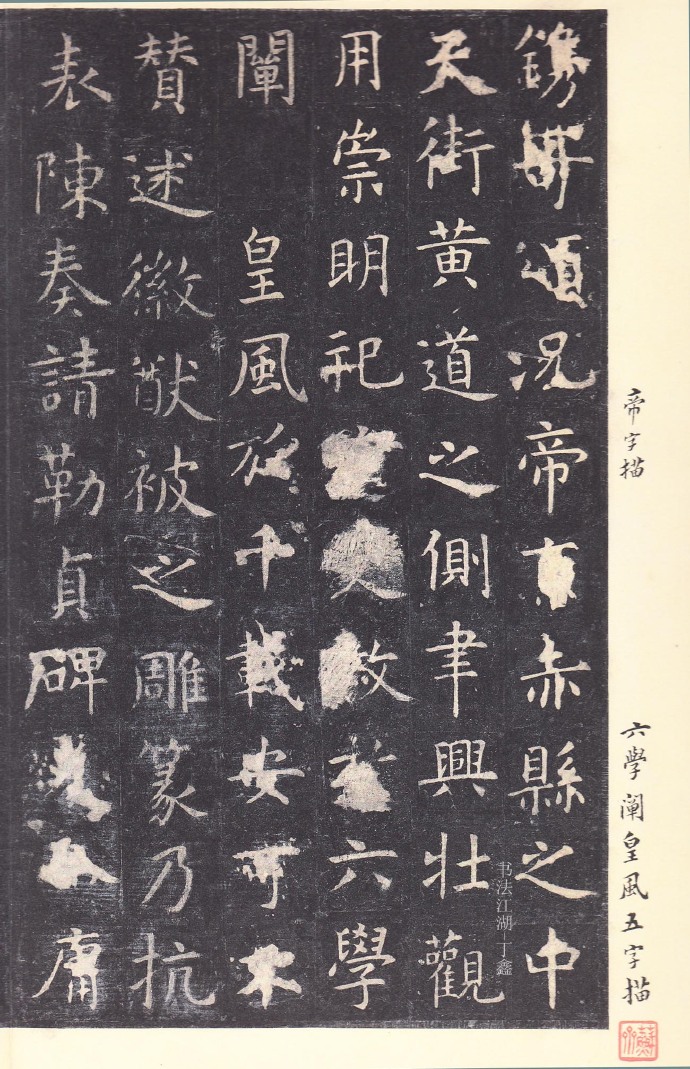 鐫
頌況帝京赤縣之中
天街黃道之側聿興壯觀
用崇明祀
敎六學
闡 皇風於千載安可不
贊述徽猷被之雕篆乃抗
表陳奏請勒貞碑
庸
帝字描
六學闡皇風五字描
书法江湖 丁鑫